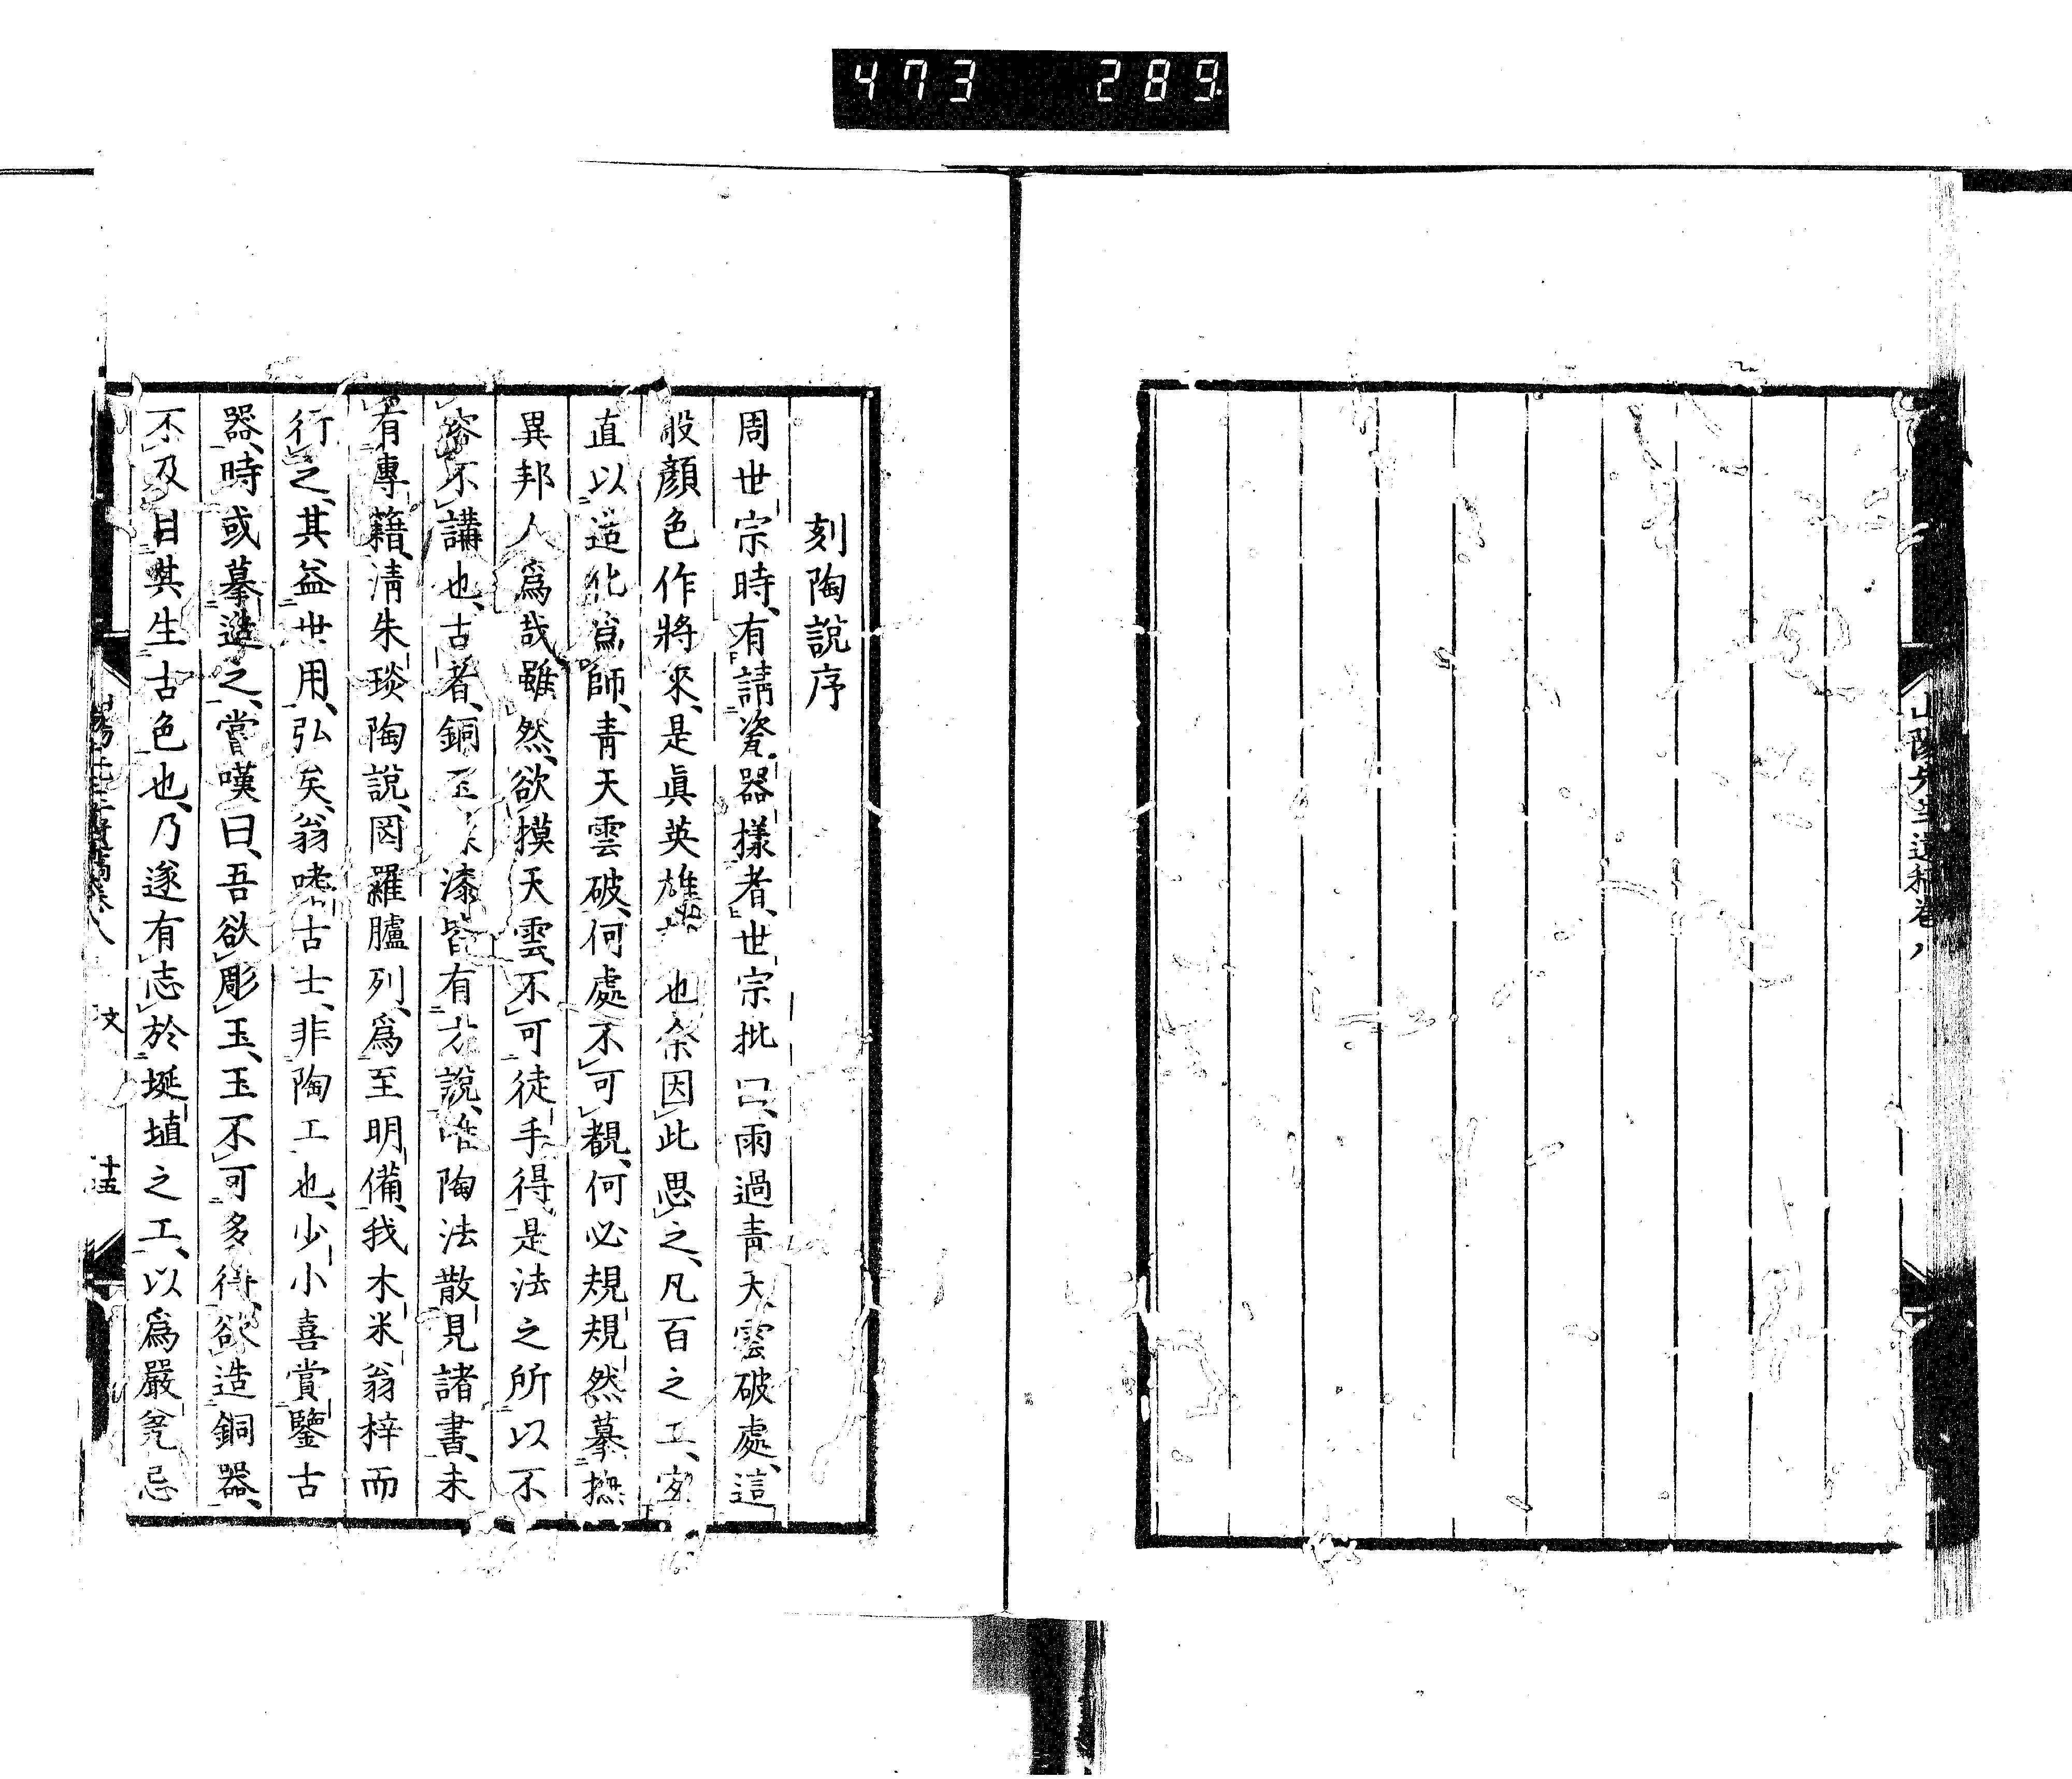 473 289
山陽先生遺稿卷八
刻陶說序
周世宗時、有請瓷器樣者、世宗批曰、雨過青天雲破處、這
般顏色作將來、是眞英雄也余因此思之、凡百之工、
直以造化爲師、青天雲破、何處不可覩、何必規規然摹撫
異邦人爲哉雖然、欲摸天雲、不可徒手得、是法之所以不
容不講也、古者、銅玉漆皆有說、陶法散見諸書、未
有專籍、淸朱琰陶說、网羅臚列、爲至明備、我木米翁梓而
行之、其益世用、弘矣、翁嗜古士、非陶工也、少小喜賞鑒古
器、時或摹造之、嘗嘆曰、吾欲彫玉、玉不可多得、欲造銅器、
不及目其生古色也、乃遂有志於埏埴之工、以爲嚴兗忌
陽先生遺稿卷八 文 十五